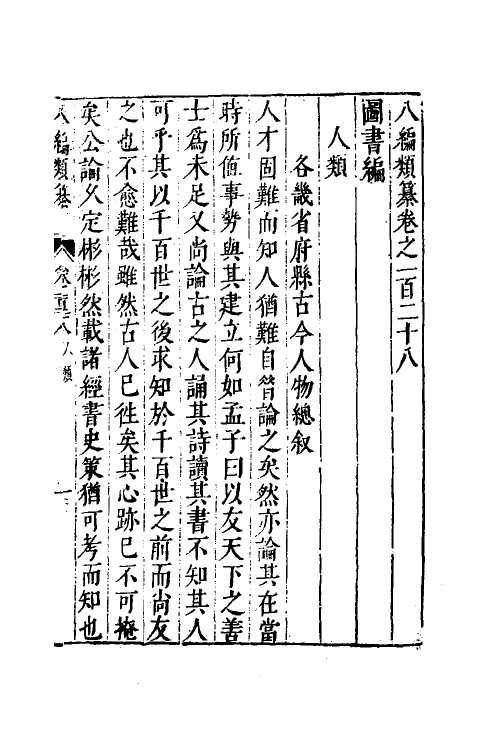 八編類纂卷之一百二十八
圖書編
人類
各畿省府縣古今人物總叙
人才固難而知人猶難自昔論之矣然亦論其在當
時所值事勢與其建立何如孟子曰以友天下之善
士爲未足又尚論古之人誦其詩讀其書不知其人
可乎其以千百世之後求知於千百世之前而尚友
之也不愈難哉雖然古人已徃矣其心跡已不可掩
矣公論久定彬彬然載諸經書史策猶可考而知也
八編類纂 卷一百二十八 人類 一